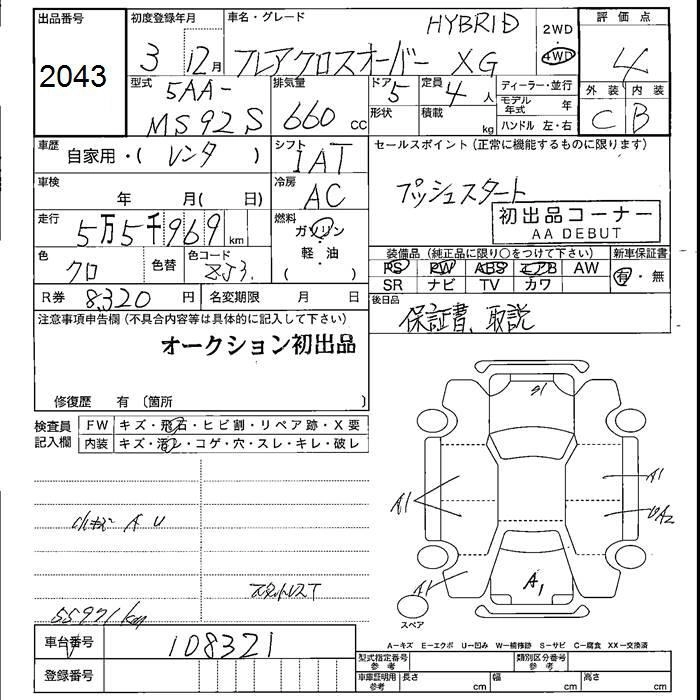 出品番号
2043
初度登録年月
3 12月
車名・グレード
HYBRID
フレアクロスオーバー XG
2WD
・
4WD
評価点
4
外装 内装
C B
型式
5AA-
MS92S
排気量
660 cc
ドア 5
形状
定員 4 人
積載 kg
ディーラー・並行
モデル年式 年
ハンドル 左・右
車歴
自家用・( レンタ )
シフト
IAT
セールスポイント (正常に機能するものに限ります)
プッシュスタート
初出品コーナー
AA DEBUT
車検
年 月( 日)
冷房
AC
走行
5万5千969 km
燃料
ガソリン
・
軽・油
( )
色
クロ
色替
色コード
ZJ3
装備品 (純正品に限り○をつけて下さい)
PS PW ABS エアB AW
SR ナビ TV カワ
新車保証書
有・無
R券 8,320 円
名変期限 月 日
後日品
保証書、取説
注意事項申告欄 (不具合内容等は具体的に記入して下さい)
オークション初出品
修復歴 有 〔箇所
検査員
記入欄
FW キズ・飛石・ヒビ割・リペア跡・X要
内装 キズ・汚レ・コゲ・穴・スレ・キレ・破レ
小キズ A U
スタットレスT
55971km
S1
A1
A1
UA2
A1
A1
スペア
車台番号
108321
登録番号
A=キズ E=エクボ U=凹み W=補修跡 S=サビ C=腐食 XX=交換済
型式指定番号
参考
類別区分番号
参考
車庫証明用
参考
長さ cm
幅 cm
高さ cm